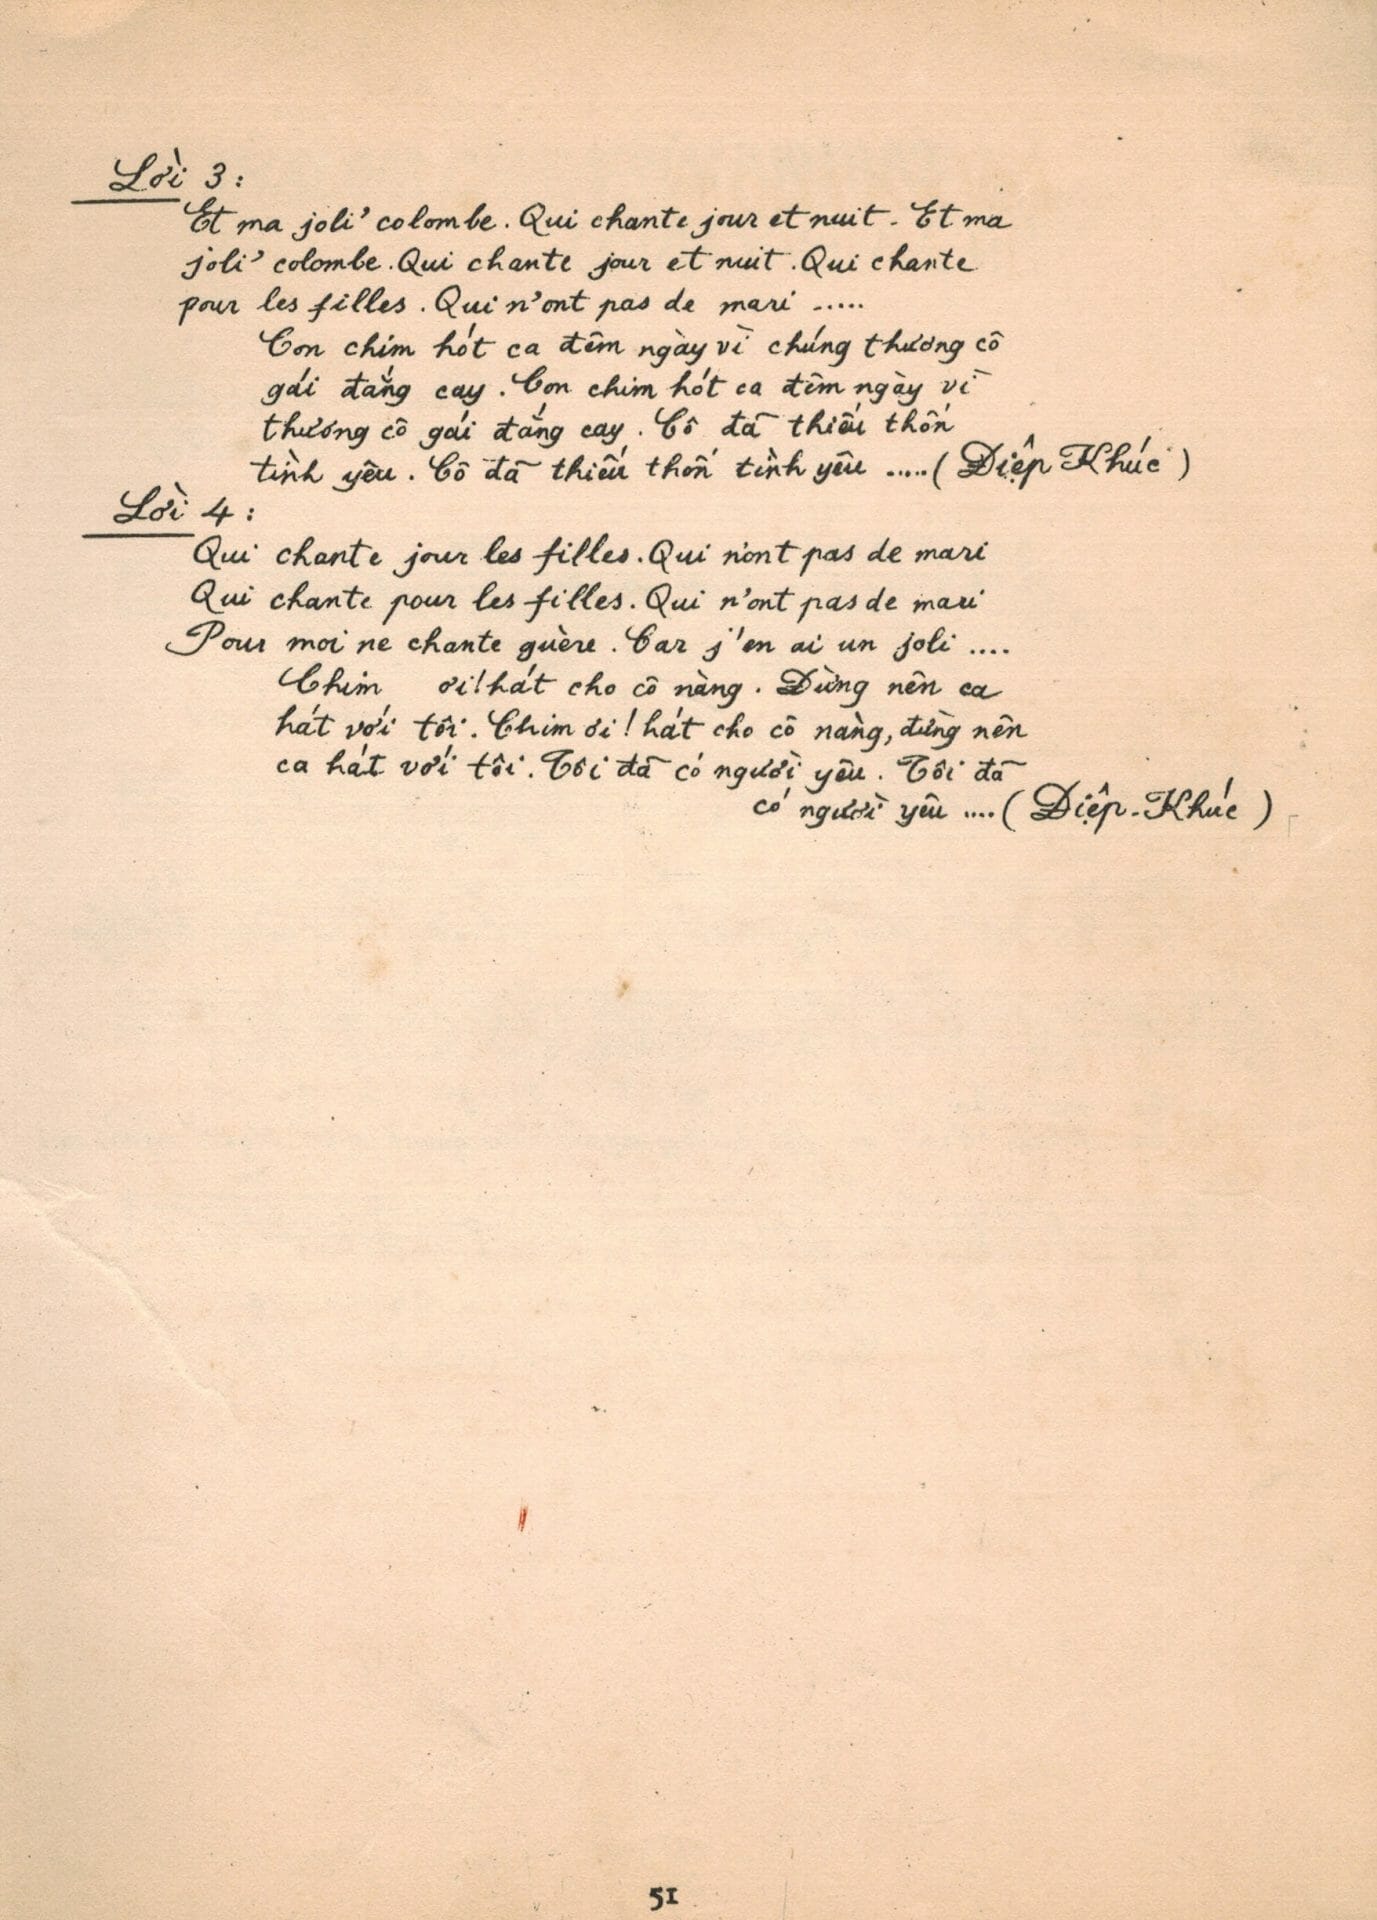 Lời 3:
Et ma joli' colombe. Qui chante jour et nuit - Et ma
joli' colombe. Qui chante jour et nuit. Qui chante
pour les filles. Qui n'ont pas de mari .....
Con chim hót ca đêm ngày vì chúng thương cô
gái đắng cay. Con chim hót ca đêm ngày vì
thương cô gái đắng cay. Cô đã thiếu thốn
tình yêu. Cô đã thiếu thốn tình yêu ..... (Điệp Khúc)
Lời 4:
Qui chante jour les filles. Qui n'ont pas de mari
Qui chante pour les filles. Qui n'ont pas de mari
Pour moi ne chante guère. Car j'en ai un joli ....
Chim ơi! hát cho cô nàng. Đừng nên ca
hát với tôi. Chim ơi! hát cho cô nàng, đừng nên
ca hát với tôi. Tôi đã có người yêu. Tôi đã
có người yêu .... (Điệp-Khúc)
51